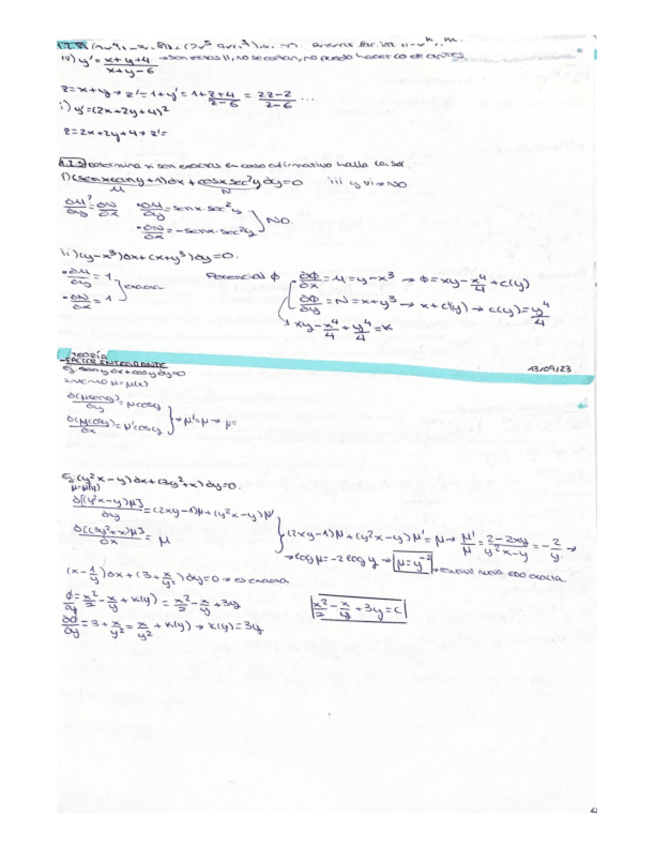 iv) y' = x+y+4 / x+y-6 → son rectas //, no se cortan, no puedo hacer lo de antes
z = x+y → z' = 1+y' = 1 + z+4 / z-6 = 2z-2 / z-6 ...
i) y' = (2x+2y+4)²
z = 2x+2y+4 → z' =
1.2.9 Determina si son exactas. En caso afirmativo halla la sol.
i) (senx tany + 1)dx + cosx sec²y dy = 0 iii y vi → NO
M N
∂M/∂y ?= ∂N/∂x • ∂M/∂y = senx·sec²y
• ∂N/∂x = -senx·sec²y } NO.
ii) (y-x³)dx + (x+y³)dy = 0.
• ∂M/∂y = 1
• ∂N/∂x = 1 } exacta
Potencial ϕ • ∂ϕ/∂x = M = y-x³ → ϕ = xy - x⁴/4 + c(y)
∂ϕ/∂y = N = x+y³ → x + c'(y) → c(y) = y⁴/4
xy - x⁴/4 + y⁴/4 = K
TEORÍA
FACTOR INTEGRANTE
13/09/23
Ej: seny dx + cosy dy = 0
μ = μ(x)
∂(μseny)/∂y = μcosy
∂(μcosy)/∂x = μ'cosy } → μ' = μ → μ =
Ej: (y²x-y)dx + (3y²+x)dy = 0.
μ = μ(y)
∂[(y²x-y)μ]/∂y = (2xy-1)μ + (y²x-y)μ'
∂[(3y²+x)μ]/∂x = μ
(2xy-1)μ + (y²x-y)μ' = μ → μ'/μ = 2-2xy / y²x-y = -2/y →
→ log μ = -2 log y → μ = y⁻² → resuelvo nueva EDO exacta
(x - 1/y)dx + (3 + x/y²)dy = 0 → es exacta
ϕ = x²/2 - x/y + K(y) = x²/2 - x/y + 3y
x²/2 - x/y + 3y = C
∂ϕ/∂y = 3 + x/y² = x/y² + K'(y) → K(y) = 3y